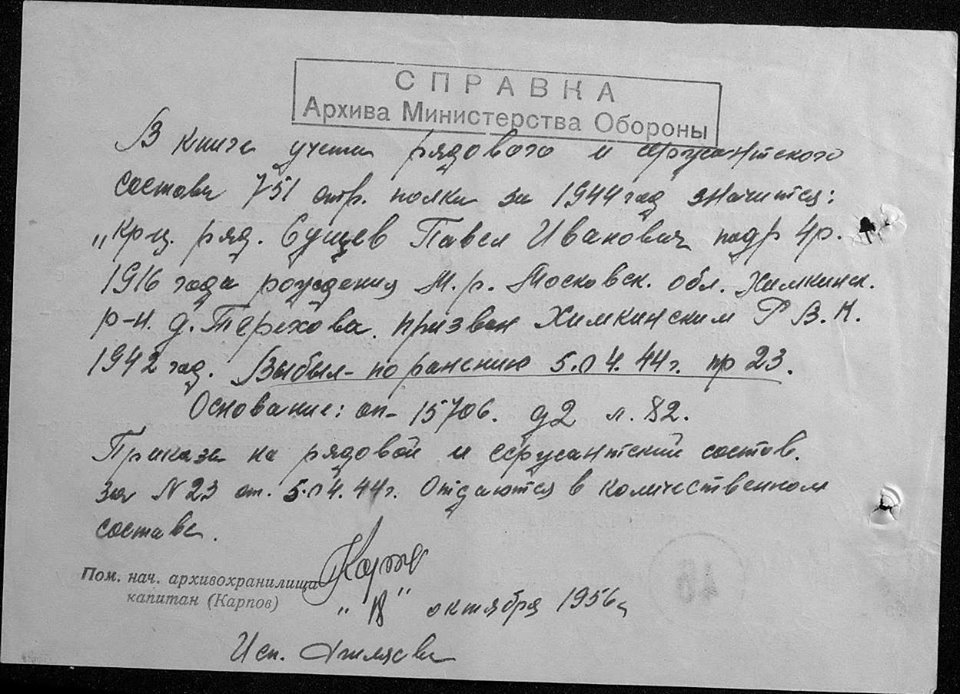 СПРАВКА
Архива Министерства Обороны
В книге учета рядового и сержантского
состава 751 стр. полка за 1944 год значится:
"Кр-ц. ряд. Сущев Павел Иванович подр 4р.
1916 года рождения М.р. Московск. обл. Химкинск.
р-н. д. Терехова. призван Химкинским Р.В.К.
1942 год. Выбыл-по ранению 5.04.44г. пр 23.
Основание: оп- 15706. д2 л. 82.
Приказа на рядовой и сержантский состав.
за N23 от. 5.04.44г. Отдаются в количественном
составе.
Пом. нач. архивохранилища
капитан (Карпов)
Карпов
"18" октября 1956г
Исп.